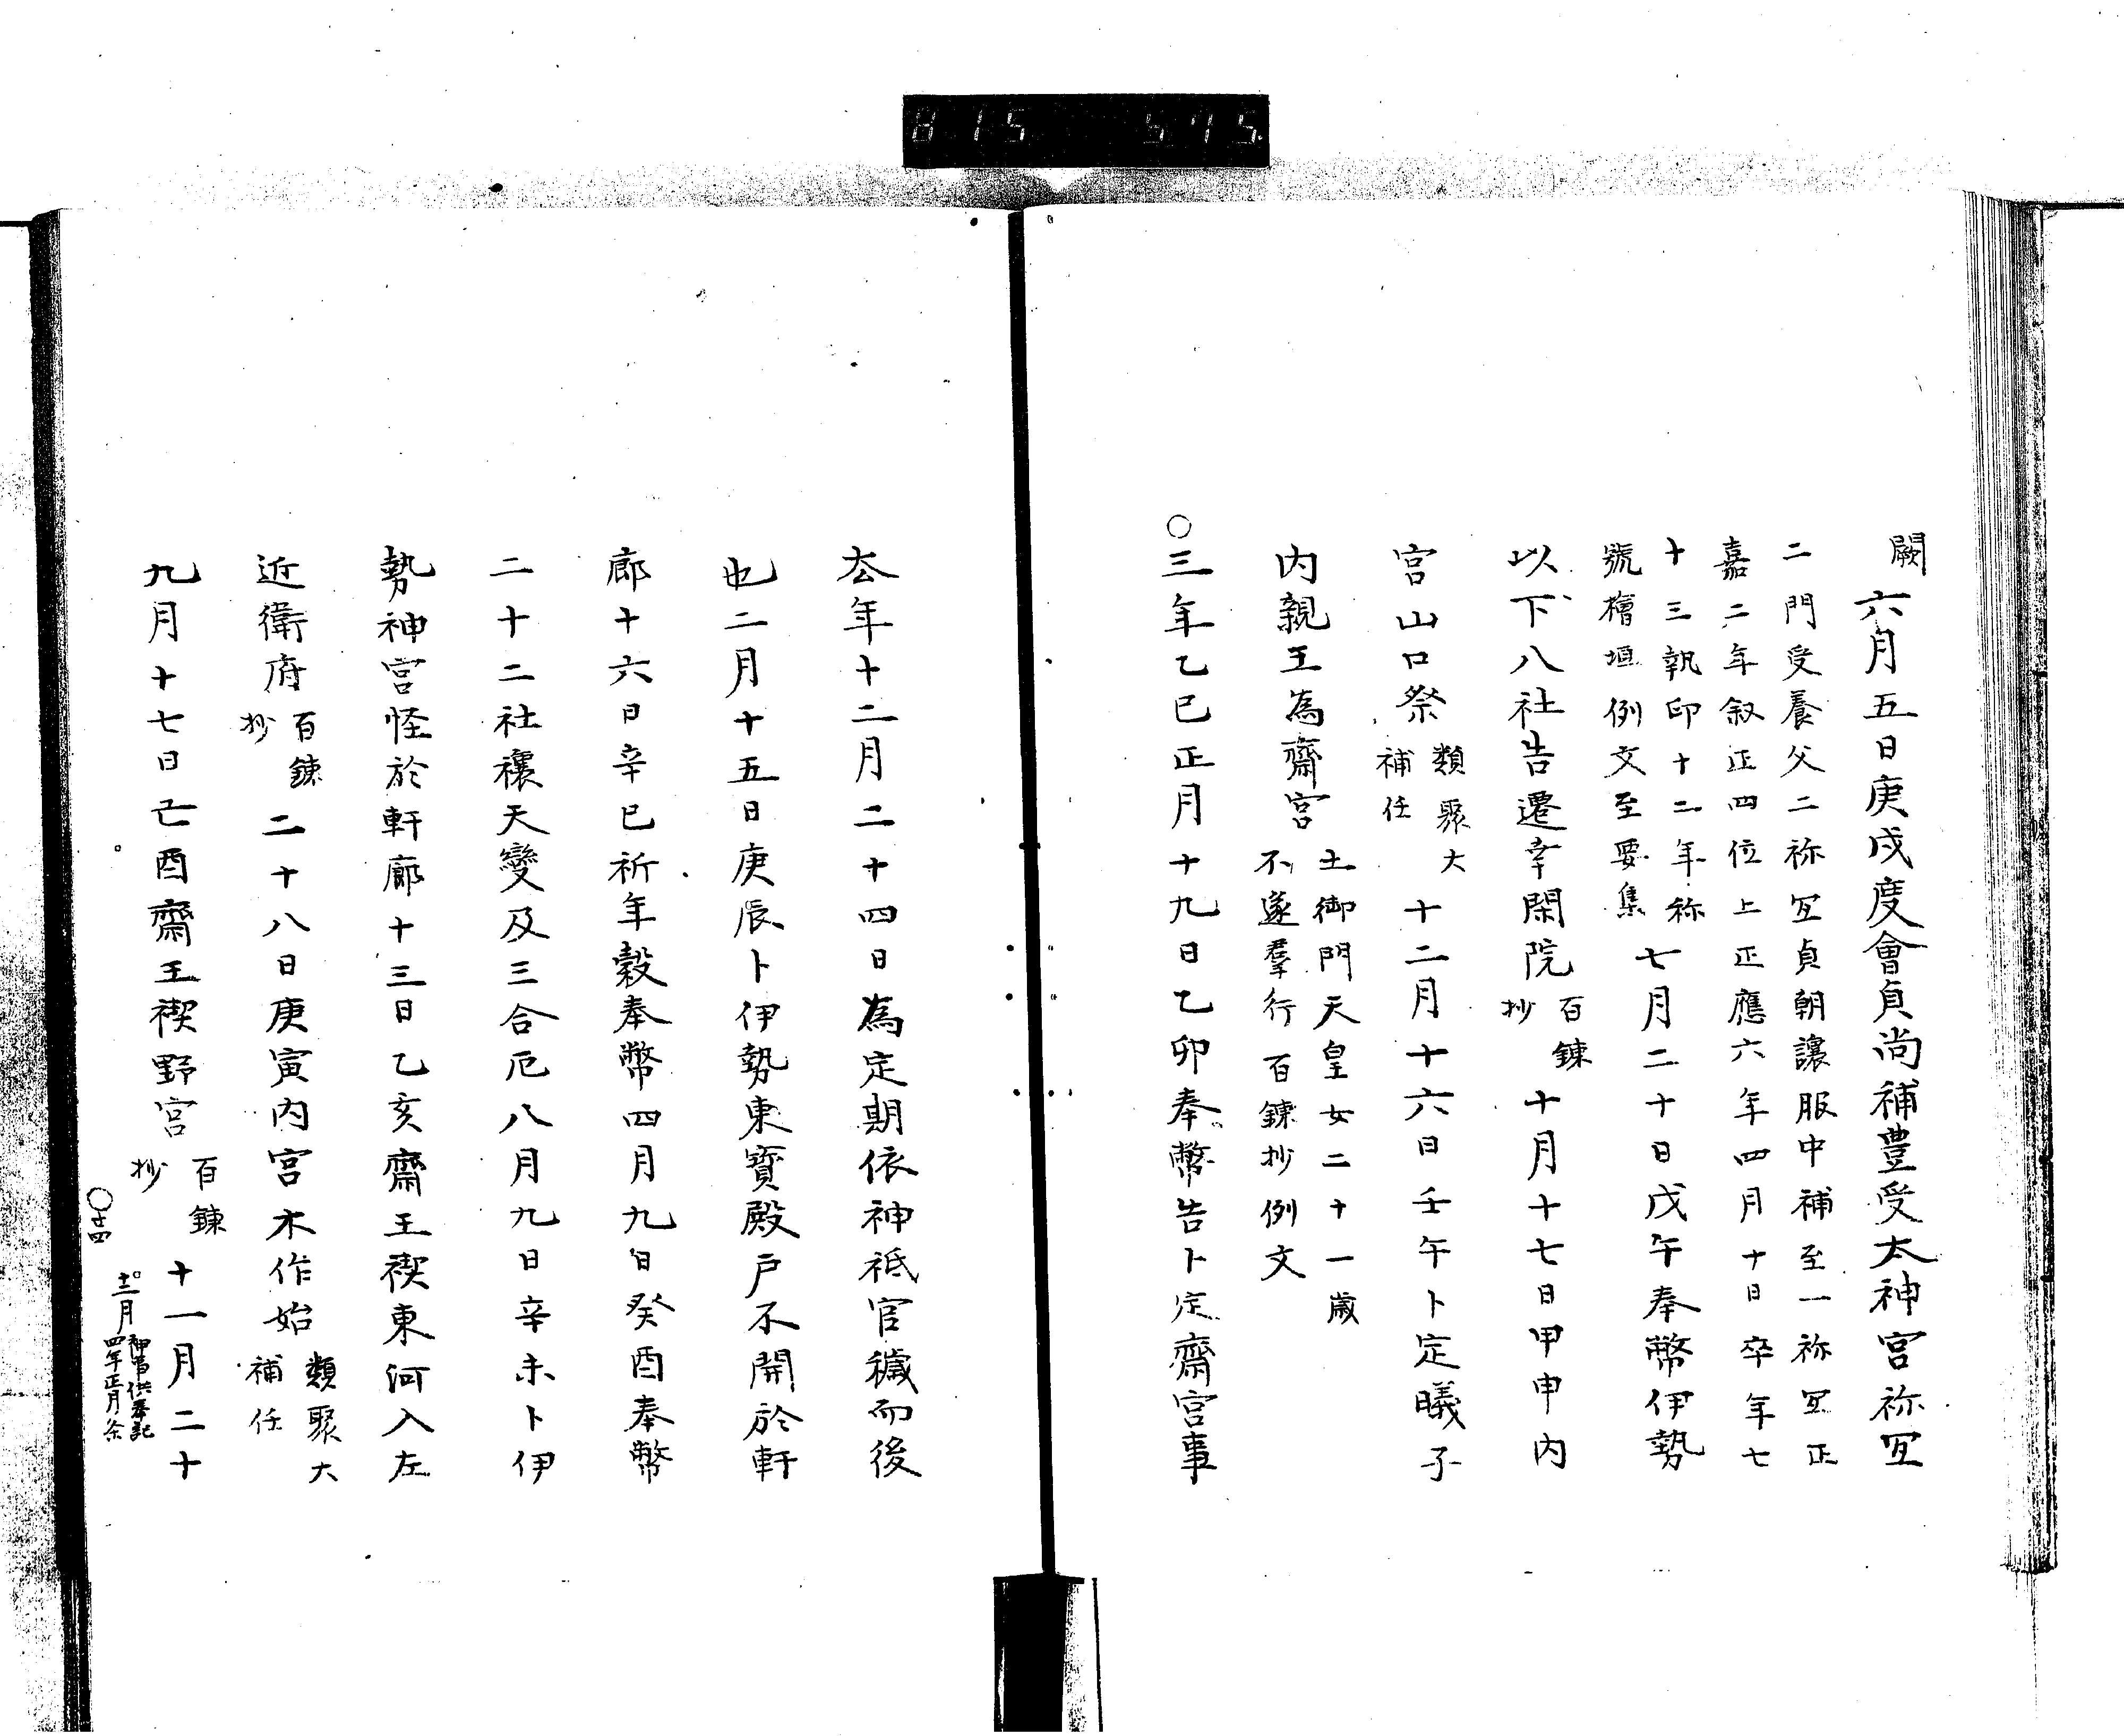 815 575.
闕六月五日庚戌度會貞尚補豊受太神宮祢冝
二門受養父二祢冝貞朝讓服中補至一祢冝正
嘉二年叙正四位上正應六年四月十日卒年七
十三執印十二年称
號檜垣例文至要集
七月二十日戊午奉幣伊勢
以下八社告遷幸閑院
百鍊
抄
十月十七日甲申内
宮山口祭
類聚大
補任
十二月十六日壬午卜定曦子
内親王為齋宮
土御門天皇女二十一歲
不遂羣行百鍊抄例文
○三年乙巳正月十九日乙卯奉幣告卜定齋宮事
厺年十二月二十四日為定期依神祗官穢而後
也二月十五日庚辰卜伊勢東寳殿戸不開於軒
廊十六日辛巳祈年穀奉幣四月九日癸酉奉幣
二十二社禳天變及三合厄八月九日辛未卜伊
勢神宮怪於軒廊十三日乙亥齋王禊東河入左
近衛府
百鍊
抄
二十八日庚寅内宮木作始
類聚大
補任
九月十七日亡酉齋王禊野宮
百鍊
抄
十一月二十
○十四
十二月
神事供奉記
四年正月条